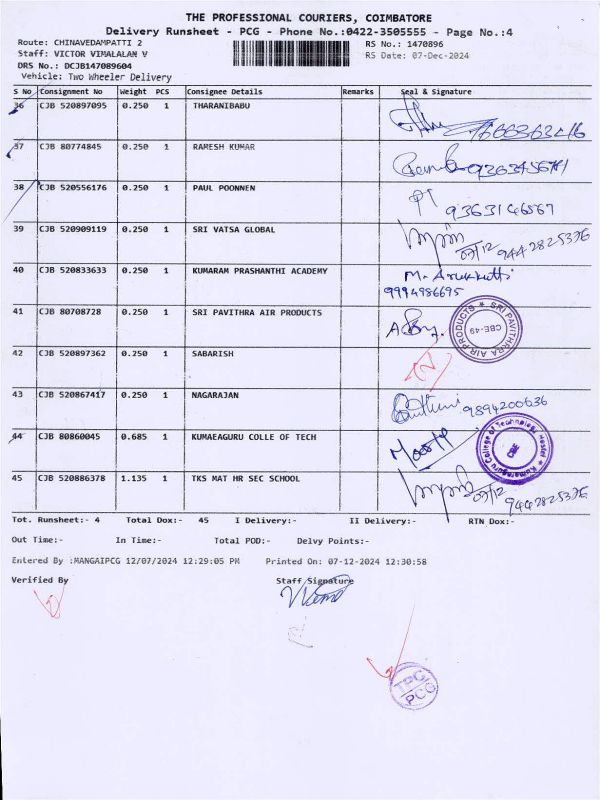 THE PROFESSIONAL COURIERS, COIMBATORE
Delivery Runsheet - PCG - Phone No.:0422-3505555 - Page No.:4
Route: CHINAVEDAMPATTI 2 RS No.: 1470896
Staff: VICTOR VIMALALAN V RS Date: 07-Dec-2024
DRS No.: DCJB147089604
Vehicle: Two Wheeler Delivery
S No Consignment No Weight PCS Consignee Details Remarks Seal & Signature
36 CJB 520897095 0.250 1 THARANIBABU
37 CJB 80774845 0.250 1 RAMESH KUMAR
38 CJB 520556176 0.250 1 PAUL POONNEN 9363146567
39 CJB 520909119 0.250 1 SRI VATSA GLOBAL 9442825376
40 CJB 520833633 0.250 1 KUMARAM PRASHANTHI ACADEMY M. Arukkutti
9994986695
41 CJB 80708728 0.250 1 SRI PAVITHRA AIR PRODUCTS SRI PAVITHRA AIR PRODUCTS CBE-49
42 CJB 520897362 0.250 1 SABARISH
43 CJB 520867417 0.250 1 NAGARAJAN 9894200636
44 CJB 80860045 0.685 1 KUMAEAGURU COLLE OF TECH Kumaraguru College of Technology CBE
45 CJB 520886378 1.135 1 TKS MAT HR SEC SCHOOL 9442825376
Tot. Runsheet:- 4 Total Dox:- 45 I Delivery:- II Delivery:- RTN Dox:-
Out Time:- In Time:- Total POD:- Delvy Points:-
Entered By :MANGAIPCG 12/07/2024 12:29:05 PM Printed On: 07-12-2024 12:30:58
Verified By Staff Signature
TPC
PCG